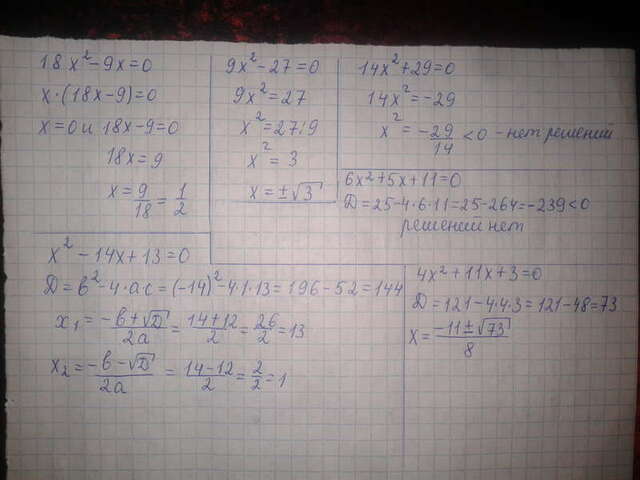 18x²-9x=0
x·(18x-9)=0
x=0 и 18x-9=0
18x=9
x=9/18=1/2
9x²-27=0
9x²=27
x²=27:9
x²=3
x=±√3
14x²+29=0
14x²=-29
x²=-29/14<0 - нет решений
6x²+5x+11=0
D=25-4·6·11=25-264=-239<0
решений нет
x²-14x+13=0
D=b²-4·a·c=(-14)²-4·1·13=196-52=144
x₁=(-b+√D)/2a=(14+12)/2=26/2=13
x₂=(-b-√D)/2a=(14-12)/2=2/2=1
4x²+11x+3=0
D=121-4·4·3=121-48=73
x=(-11±√73)/8